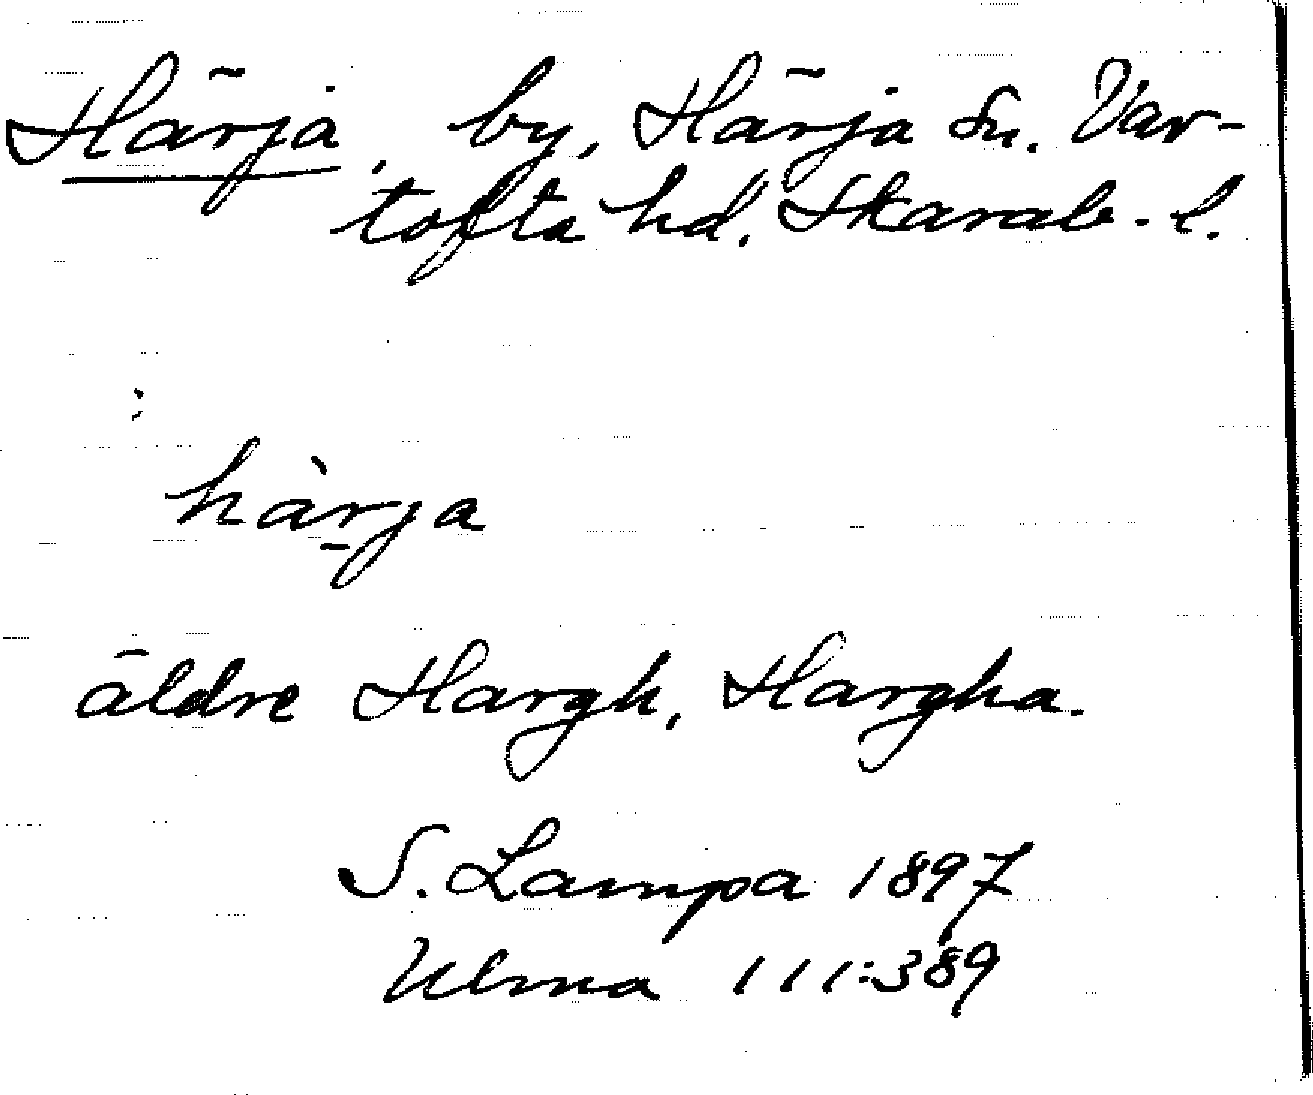 Härja, by, Härja sn. Var-
tofta hd. Skarab. l.
:
hàr̲ja
äldre Hargh, Hargha.
S. Lampa 1897
Ulma 111:389